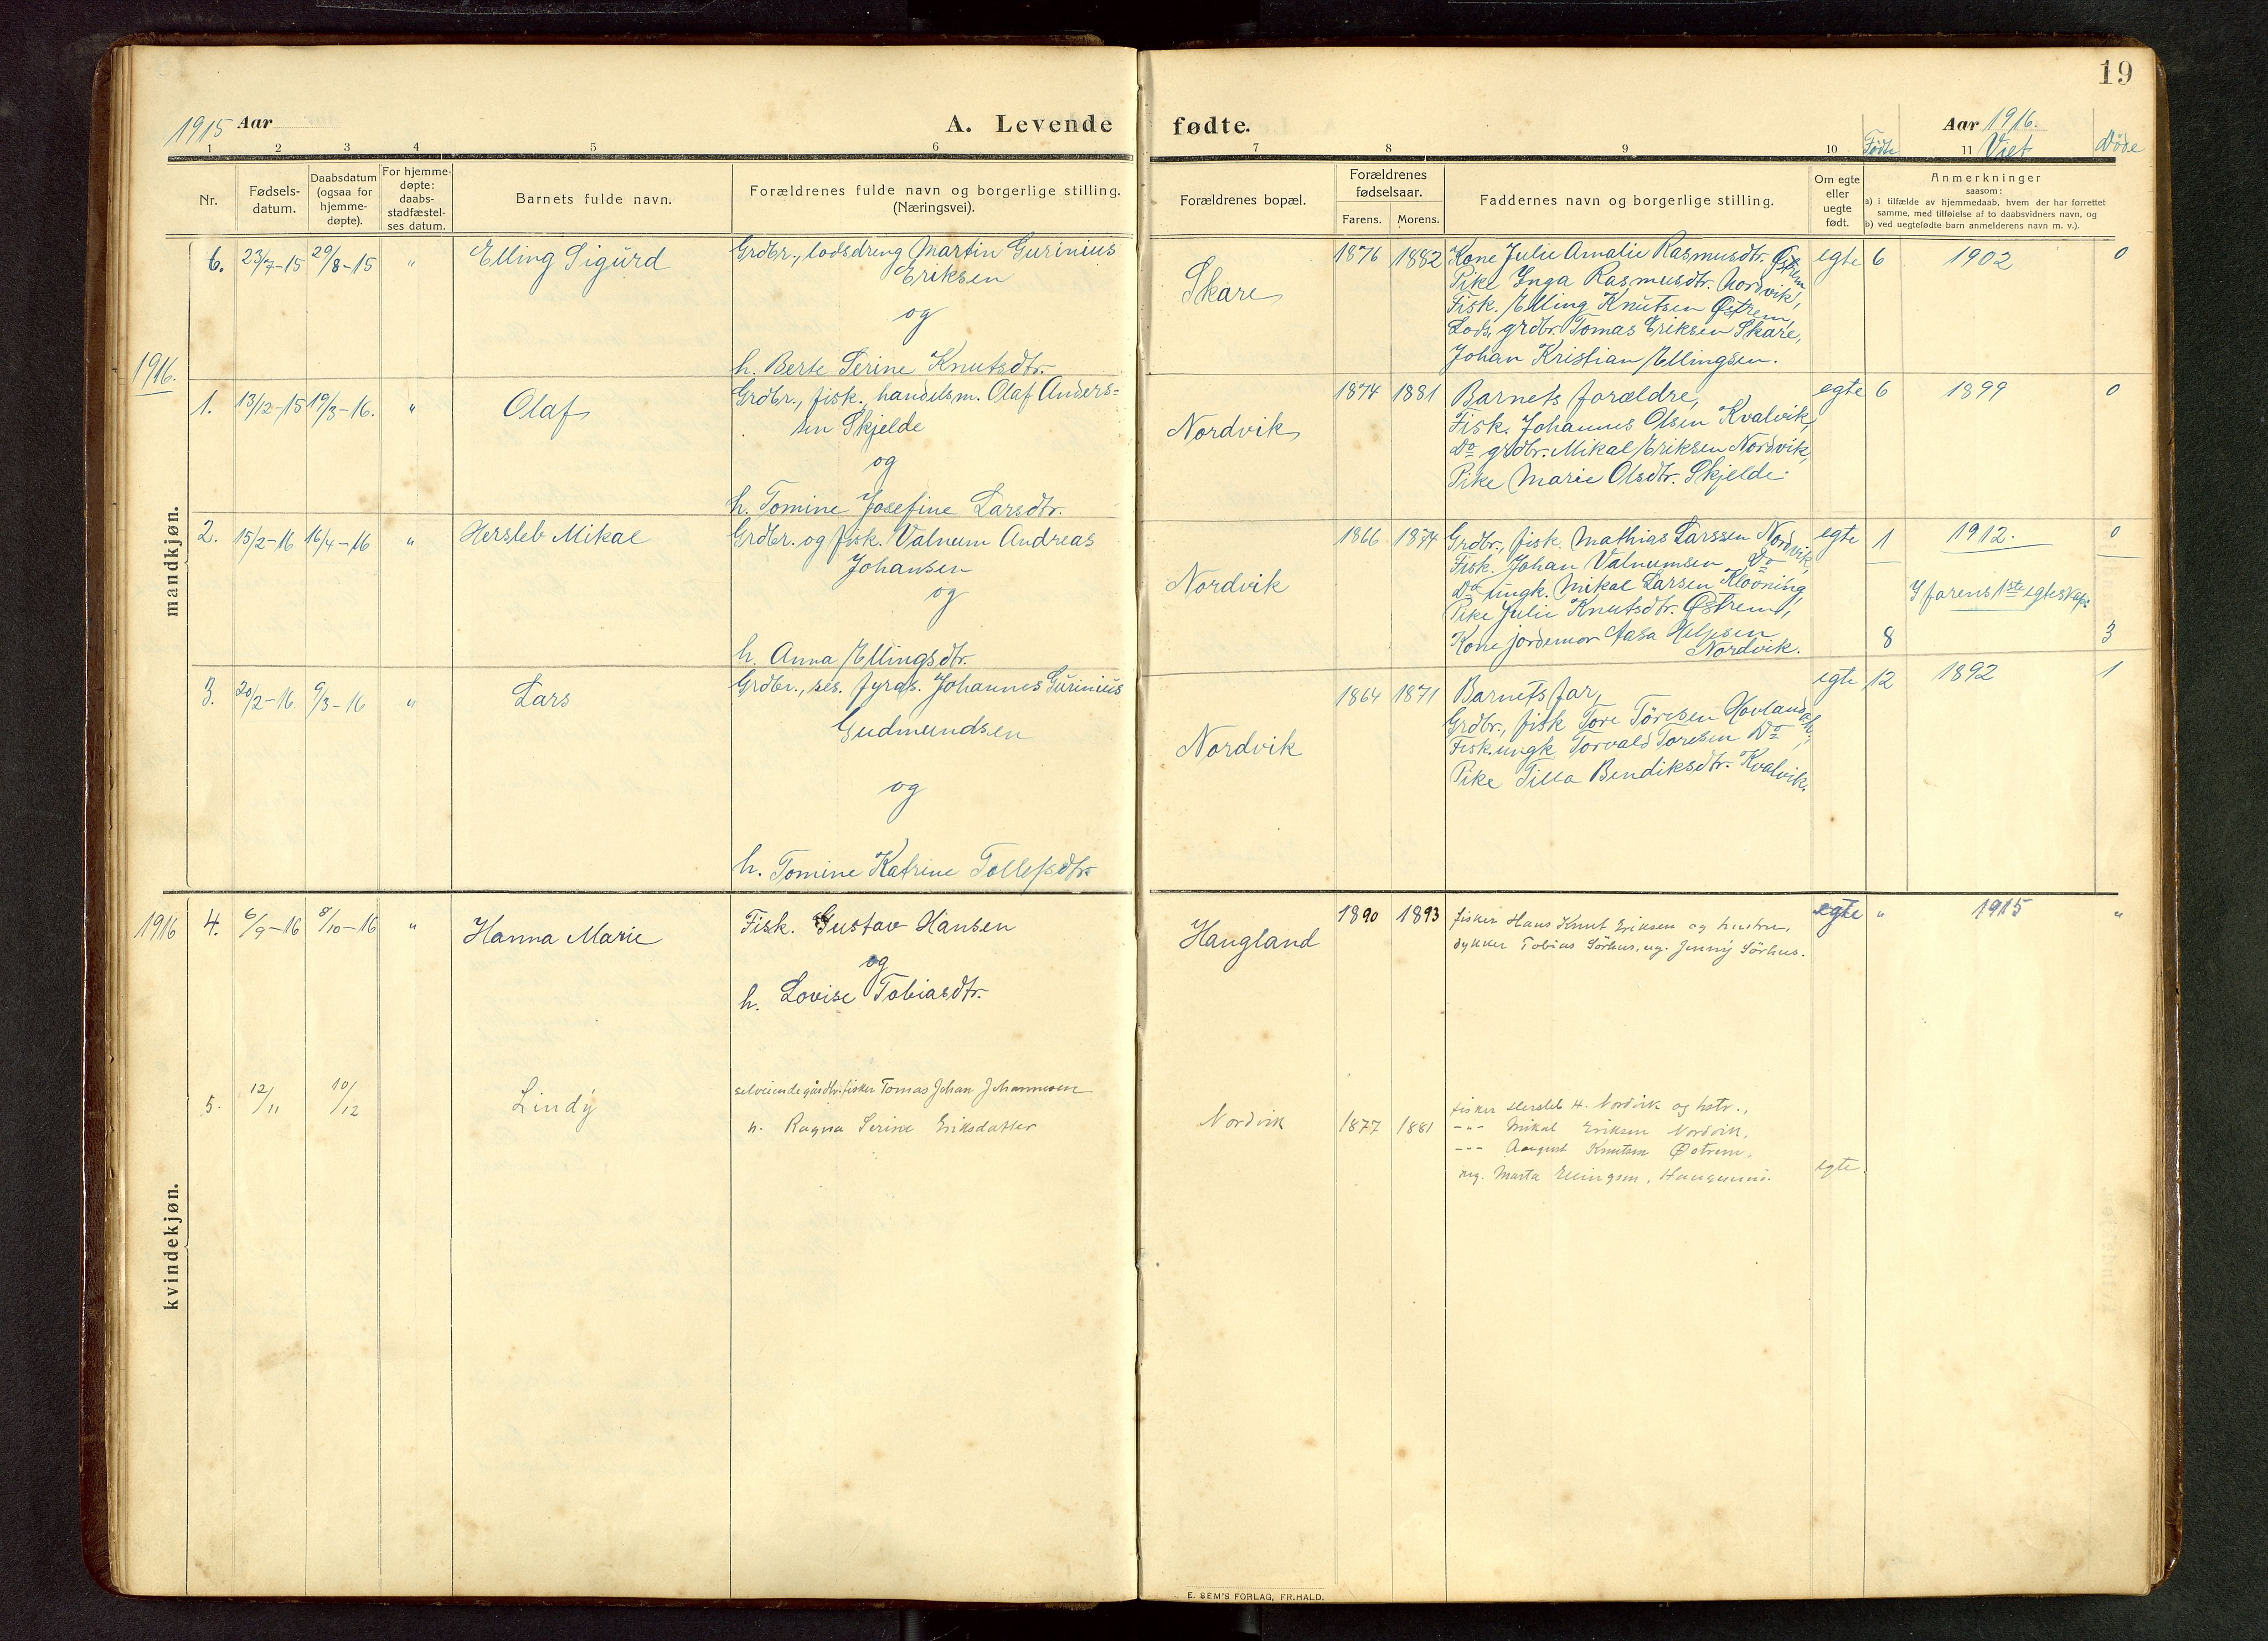 19
1915 Aar
A. Levende fødte.
Aar 1916.
1 2 3 4 5 6 7 8 9 10 Fødte 11 Viet Døde
Nr.
Fødsels-
datum.
Daabsdatum
(ogsaa for
hjemme-
døpte).
For hjemme-
døpte:
daabs-
stadfæstel-
ses datum.
Barnets fulde navn.
Forældrenes fulde navn og borgerlige stilling.
(Næringsvei).
Forældrenes bopæl.
Forældrenes
fødselsaar.
Farens. Morens.
Faddernes navn og borgerlige stilling.
Om egte
eller
uegte
født.
Anmerkninger
saasom:
a) i tilfælde av hjemmedaab, hvem der har forrettet
samme, med tilføielse af to daabsvidners navn, og
b) ved uegtefødte barn anmelderens navn m. v.).
mandkjøn.
6. 23/7-15 29/8-15 "
Elling Sigurd
Grdbr., lodsdreng Martin Gurinius
Eriksen
og
h. Berte Serine Knutsdtr.
Skare
1876 1882
Kone Julie Amalie Rasmusdtr. Østrem
Pike Inga Rasmusdtr. Nordvik,
Fisk. Elling Knutsen Østrem,
Lods, grdbr. Tomas Eriksen Skare,
Johan Kristian Ellingsen.
egte 6 1902 0
1916.
1. 13/12-15 19/3-16. "
Olaf
Grdbr., fisk., handelsm. Olaf Anders-
sen Skjelde
og
h. Tomine Josefine Larsdtr.
Nordvik
1874 1881
Barnets forældre,
Fisk. Johannes Olsen Kvalvik,
Do grdbr. Mikal Eriksen Nordvik,
Pike Marie Olsdtr. Skjelde.
egte 6 1899 0
2. 15/2-16 16/4-16 "
Hersleb Mikal
Grdbr. og fisk. Valnum Andreas
Johansen
og
h. Anna Ellingsdtr.
Nordvik
1866 1874
Grdbr., fisk. Mathias Larssen Nordvik,
Fisk. Johan Valnumsen Do,
Do ungk. Mikal Larsen Klovning,
Pike Julie Knutsdtr. Østrem,
Kone jordemor Aasa
Nordvik.
egte 1 1912. 0
I farens 1ste egteskap:
8 3
3. 20/2-16. 9/3-16 "
Lars
Grdbr., res. fyras. Johannes Gurinius
Gudmundsen
og
h. Tomine Katrine Tollefsdtr.
Nordvik
1864 1871
Barnets far,
Grdbr., fisk Tore Töresen
Fisk. ungk Torvald Toresen Do,
Pike Tilla Bendiksdtr. Kvalvik.
egte 12 1892 1
kvindekjøn.
1916 4. 6/9-16 8/10-16 "
Hanna Marie
Fisk. Gustav Hansen
og
h. Lovise Tobiasdtr.
Haugland
1890 1893
fisker Hans Knut Eriksen og hustru,
dykker Tobias Sörhus, ug. Jenny Sörhus.
egte " 1915 "
5. 12/11 10/12
Lindy
selveiende gårdbr. fisker Tomas Johan Johannesen
h. Ragna Serine Eriksdatter
Nordvik
1877 1881
fisker Hersleb H. Nordvik og hstr.,
--- Mikal Eriksen Nordvik,
--- August Knutsen Østrem,
ug. Marta Ellingsen, Haugesund.
egte.
E. SEM'S FORLAG, FR.HALD.